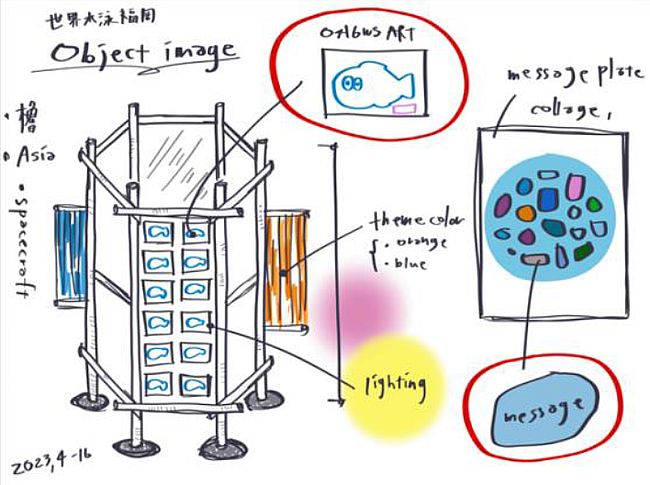 世界水泳福岡
Object image
・櫓
・Asia
・spacecraft
ART
message plate
collage,
theme color
・orange
・blue
lighting
message
2023,4-16